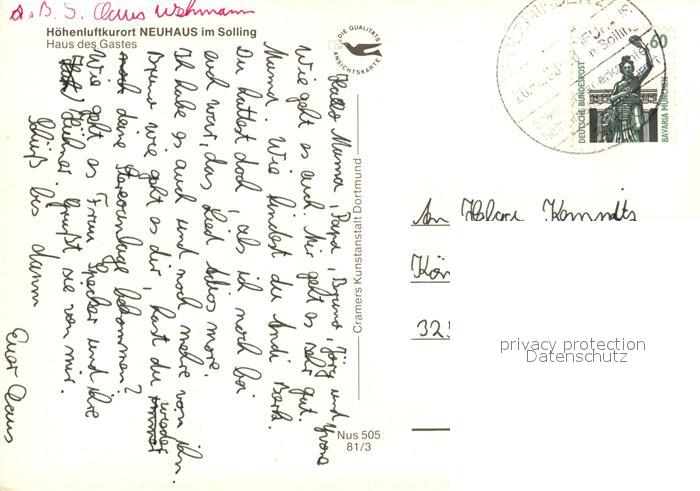 a. B. S. Claus Wehmann
Höhenluftkurort NEUHAUS im Solling
Haus des Gastes
DIE QUALITÄTS
ANSICHTSKARTE
Hallo Mama, Papa, Bruno, Jörg und Yvonne
Wie geht es euch. Mir geht es sehr gut.
Mama. Wie findest du Andi Berk.
Du hattest doch, als ich noch bei
euch war, das Lied Adios more.
Ich habe es auch und noch mehr von ihm.
Bruno wie geht es dir, hast du wieder
deine Stereoanlage bekommen?
Wie geht es Frau Specker und ihre
Hühner. Grüßt sie von mir.
Tschüß bis dann
Euer Claus
Cramers Kunstanstalt Dortmund
Nus 505
81/3
60
DEUTSCHE BUNDESPOST
BAVARIA MÜNCHEN
An
Kön
32
privacy protection
Datenschutz